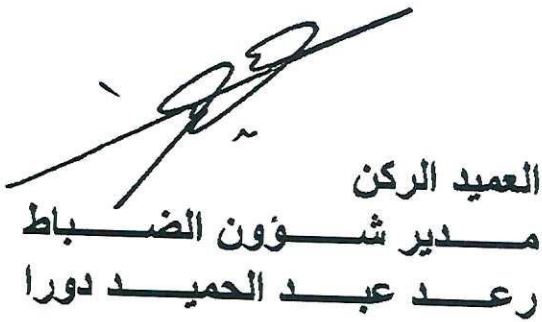 العميد الركن
مدير شؤون الضباط
رعد عبد الحميد دورا